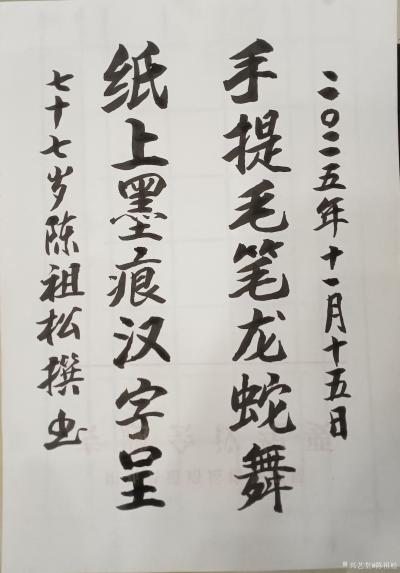 二〇二五年十一月十五日
手提毛笔龙蛇舞
纸上墨痕汉字呈
七十七岁陈祖松撰书